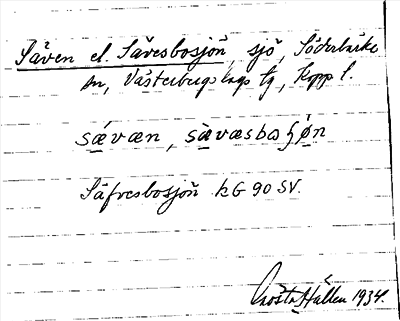 Säven el. Sävesbosjön sjö, Söderbärke
sn, Västerbergslags tg, Kopp l.
sævæn, sævæsbosjøn
Säfvesbosjön kG 90 SV.
Gösta Hallen 1934.